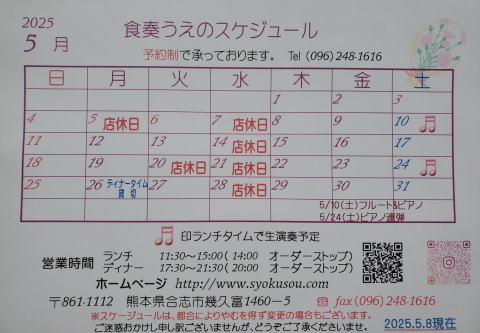 2025
5 月
食奏うえのスケジュール
予約制で承っております。 Tel (096) 248-1616
日 月 火 水 木 金 土
1 2 3
4 5 店休日 6 7 店休日 8 9 10
11 12 13 14 店休日 15 16 17
18 19 20 店休日 21 店休日 22 23 24
25 26 ディナータイム 27 28 店休日 29 30 31
貸 切
5/10(土)フルート&ピアノ
5/24(土)ピアノ連弾
印ランチタイムで生演奏予定
営業時間
ランチ 11:30~15:00 ( 14:00 オーダーストップ)
ディナー 17:30~21:30 ( 20:00 オーダーストップ)
ホームページ http://www.syokusou.com/
〒861-1112 熊本県合志市幾久富1460-5 ☎ fax (096) 248-1616
※スケジュールは、都合によりやむを得ず変更の場合もございます。
ご迷惑おかけし申し訳ございませんが、どうぞご了承くださいませ。 2025.5.8現在